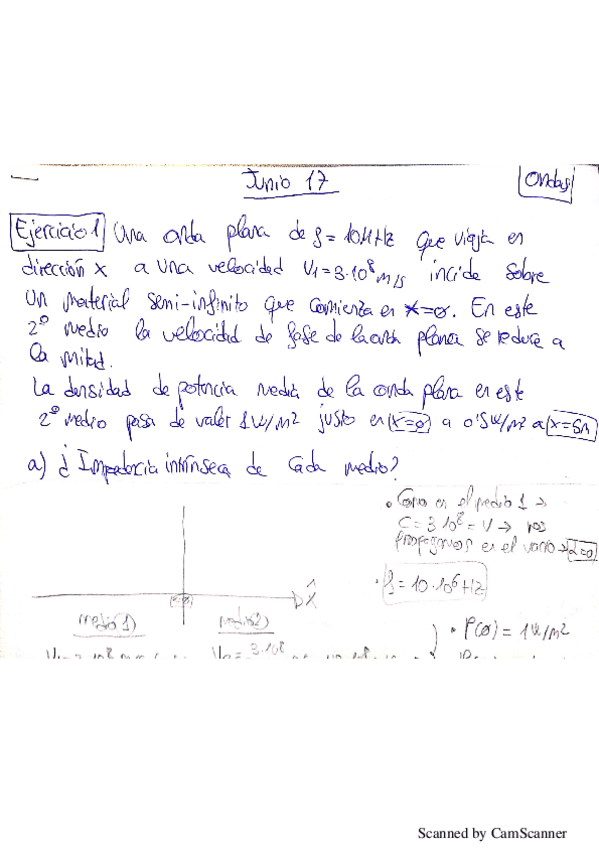 Junio 17
Ondas
Ejercicio 1 Una onda plana de f = 10MHz que viaja en
dirección x a una velocidad V1 = 3·10⁸ m/s incide sobre
Un material semi-infinito que comienza en x=0. En este
2º medio la velocidad de fase de la onda plana se reduce a
la mitad.
La densidad de potencia media de la onda plana en este
2º medio pasa de valer 1W/m² justo en (x=0) a 0'5W/m² a (x=5m)
a) ¿Impedancia intrínseca de cada medio?
• Como en el medio 1 →
C = 3·10⁸ = V → nos
propagamos en el vacío → α=0
• f = 10·10⁶ Hz
x̂
medio 1)
medio 2)
• P(0) = 1W/m²
3·10⁸
Scanned by CamScanner